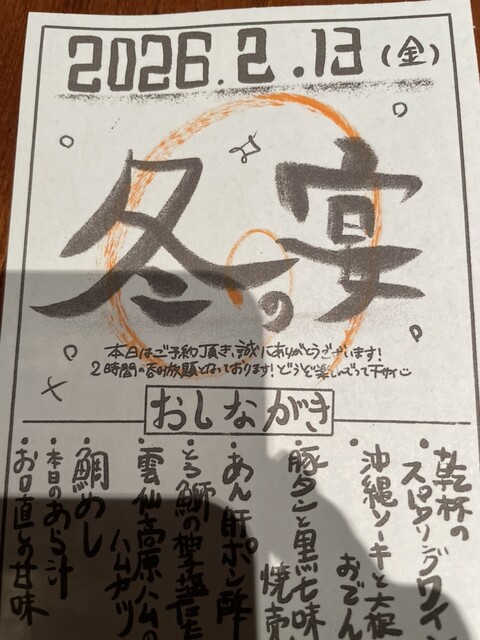 2026.2.13(金)
冬の宴
本日はご予約頂き、誠にありがとうございます!
2時間の呑み放題となっております!どうぞ楽しんでって下さい
おしながき
・乾杯の
スパークリングワイ
・沖縄ソーキと大根
おでん
・豚タンと黒七味
焼売
・あん肝ポン酢
・とろ鰤の柚塩
・雲仙高原ハムの
ハムカツ
・鯛めし
・本日のあら汁
・お口直しの甘味